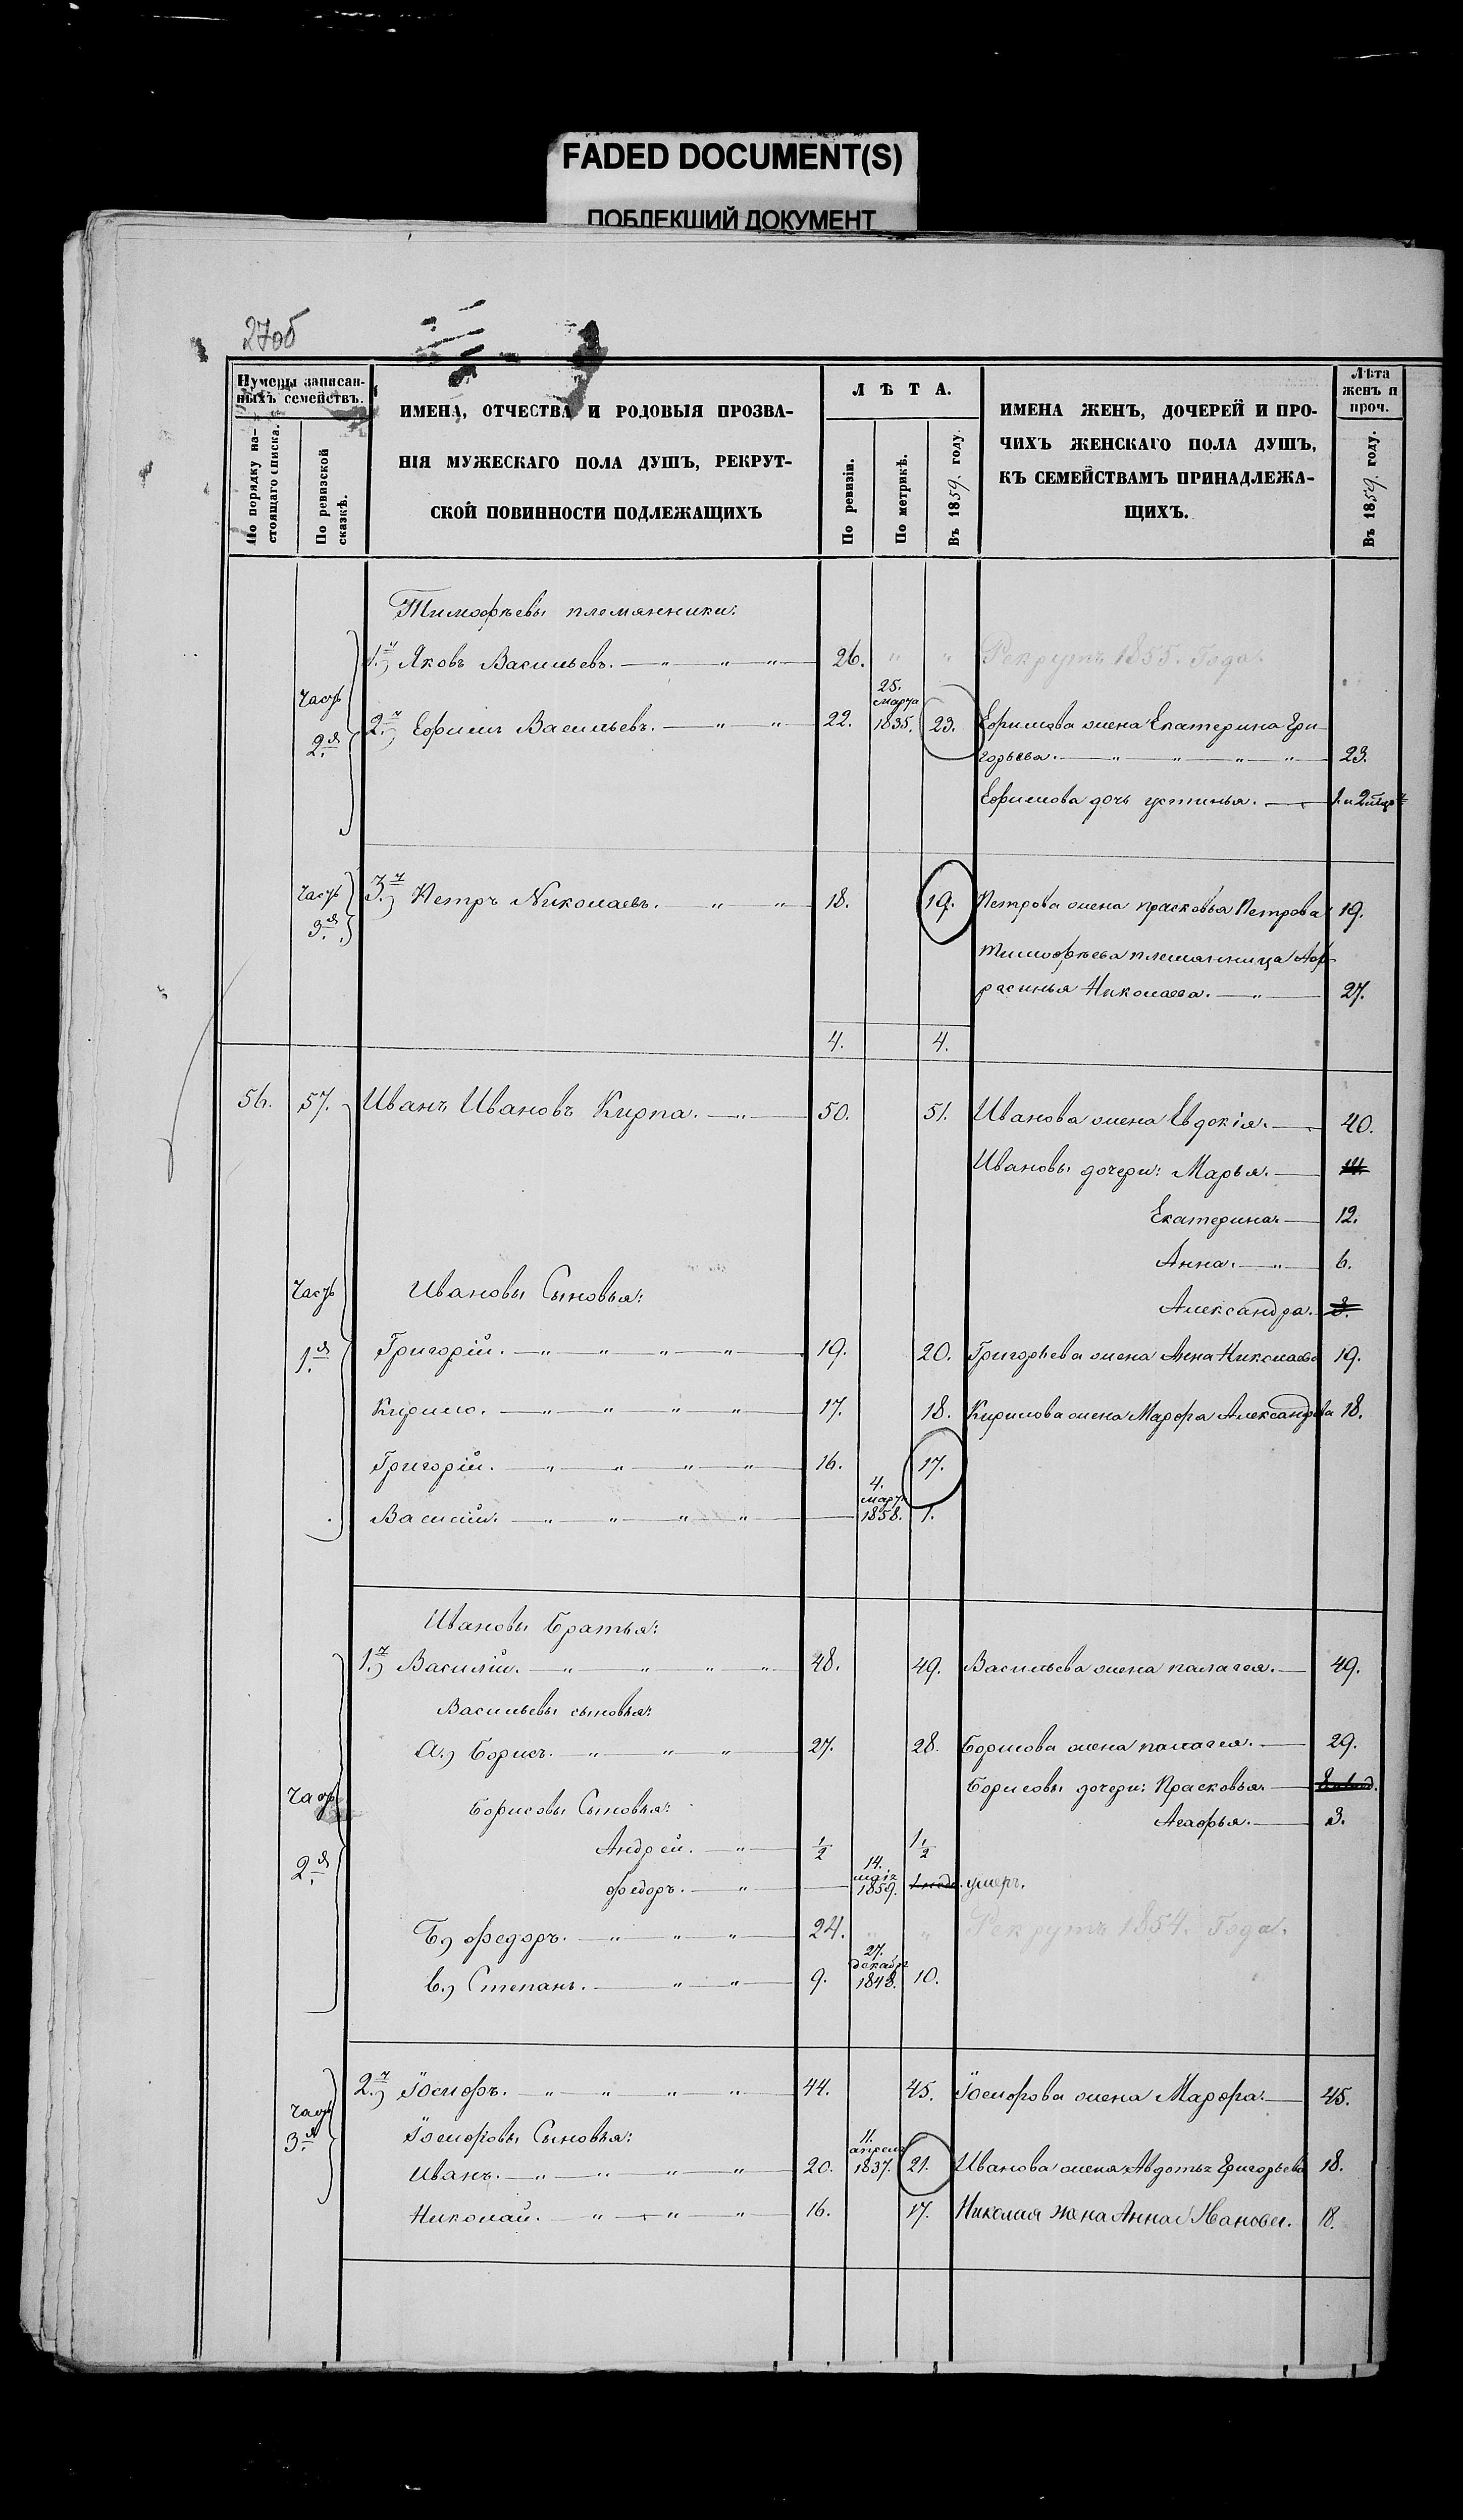 FADED DOCUMENT(S)
ПОБЛЕКШИЙ ДОКУМЕНТ
27об
Нумеры записан-
ныхъ семействъ.
По порядку на-
стоящаго списка.
По ревизской
сказкѣ.
ИМЕНА, ОТЧЕСТВА И РОДОВЫЯ ПРОЗВА-
НІЯ МУЖЕСКАГО ПОЛА ДУШЪ, РЕКРУТ-
СКОЙ ПОВИННОСТИ ПОДЛЕЖАЩИХЪ
ЛѢТА.
По ревизіи.
По метрикѣ.
Въ 1859. году
ИМЕНА ЖЕНЪ, ДОЧЕРЕЙ И ПРО-
ЧИХЪ ЖЕНСКАГО ПОЛА ДУШЪ,
КЪ СЕМЕЙСТВАМЪ ПРИНАДЛЕЖА-
ЩИХЪ.
Лѣта
женъ и
проч.
Въ 1859. году.
Тимофѣевы племянники:
1.й) Яковъ Васильевъ. — " — " — " — 26. " " Рекрутъ 1855. Года.
Часть
2.я
2.й) Ефимъ Васильевъ. — " — " 22. 25. марта 1835. 23. Ефимова жена Екатерина Гри-
горьева. — " — " — " — " — 23.
Ефимова дочь Устинья. —
Часть
3.я
3.й) Петръ Николаевъ. " — " 18. 19. Петрова жена Прасковья Петрова 19.
Тимофѣева племянница Аф-
росинья Николаева. — " — 27.
4. 4.
56. 57. Иванъ Ивановъ Кирпа. — " — 50. 51. Иванова жена Евдокія. — 40.
Ивановы дочери: Марья. — 14.
Екатерина. — 12.
Анна. — " — 6.
Часть
1.я
Ивановы Сыновья:
Александра. 3.
Григорій. — " — " — " — " — 19. 20. Григорьева жена Анна Николаева 19.
Кирило. — " — " — " — " — 17. 18. Кирилова жена Марфа Александрова 18.
Григорій. — " — " — " — " — 16. 17.
Василій. — " — " — " — " — 4. марта 1858. 1.
Ивановы Братья:
1.й) Василій. — " — " — " — " 48. 49. Васильева жена Палагея. — 49.
Васильевы сыновья:
а.) Борисъ. — " — " — " — 27. 28. Борисова жена Палагея. — 29.
Борисовы дочери: Прасковья. —
Часть
2.я
Борисовы Сыновья:
Агафья. — 3.
Андрей. — " — 1/2 1 1/2
Федоръ. — " — 14. маія 1859. умеръ.
б.) Федоръ. — " — " — " — 24. " " Рекрутъ 1854. Года.
в.) Степанъ. — " — " — 9. 27. декабря 1848. 10.
Часть
3.я
2.й) Іосифъ. — " — " — " — " — 44. 45. Іосифова жена Марфа. — 45.
Іосифовы Сыновья:
Иванъ. — " — " — " — " — 20. 11. апреля 1837. 21. Иванова жена Авдотья Григорьева 18.
Николай. — " — " — " — 16. 17. Николая жена Анна Иванова. 18.